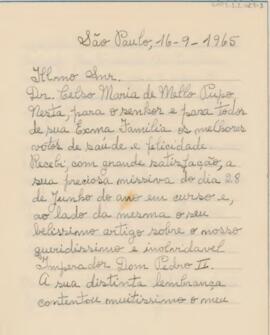 São Paulo, 16-9-1965
Illmo Snr.
Dr. Celso Maria de Mello Pupo,
Nesta, para o senhor e para todos
de sua Exma Familia os melhores
votos de saúde e felicidade.
Recebi, com grande satisfação, a
sua preciosa missiva do dia 28
de Junho do ano em curso e,
ao lado da mesma o seu
belissimo artigo sobre o nosso
queridissimo e inolvidavel
Imperador Dom Pedro II.
A sua distinta lembrança
contentou muitissimo o meu